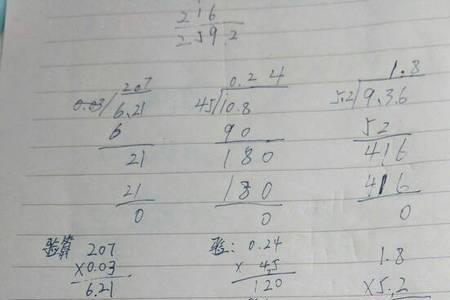 216
259.2
207 0.24 1.8
0.03/6.21 45/10.8 5.2/9.36
6 90 52
21 180 416
21 180 416
0 0 0
验算 207 验: 0.24 1.8
×0.03 × 45 ×5.2
6.21 120